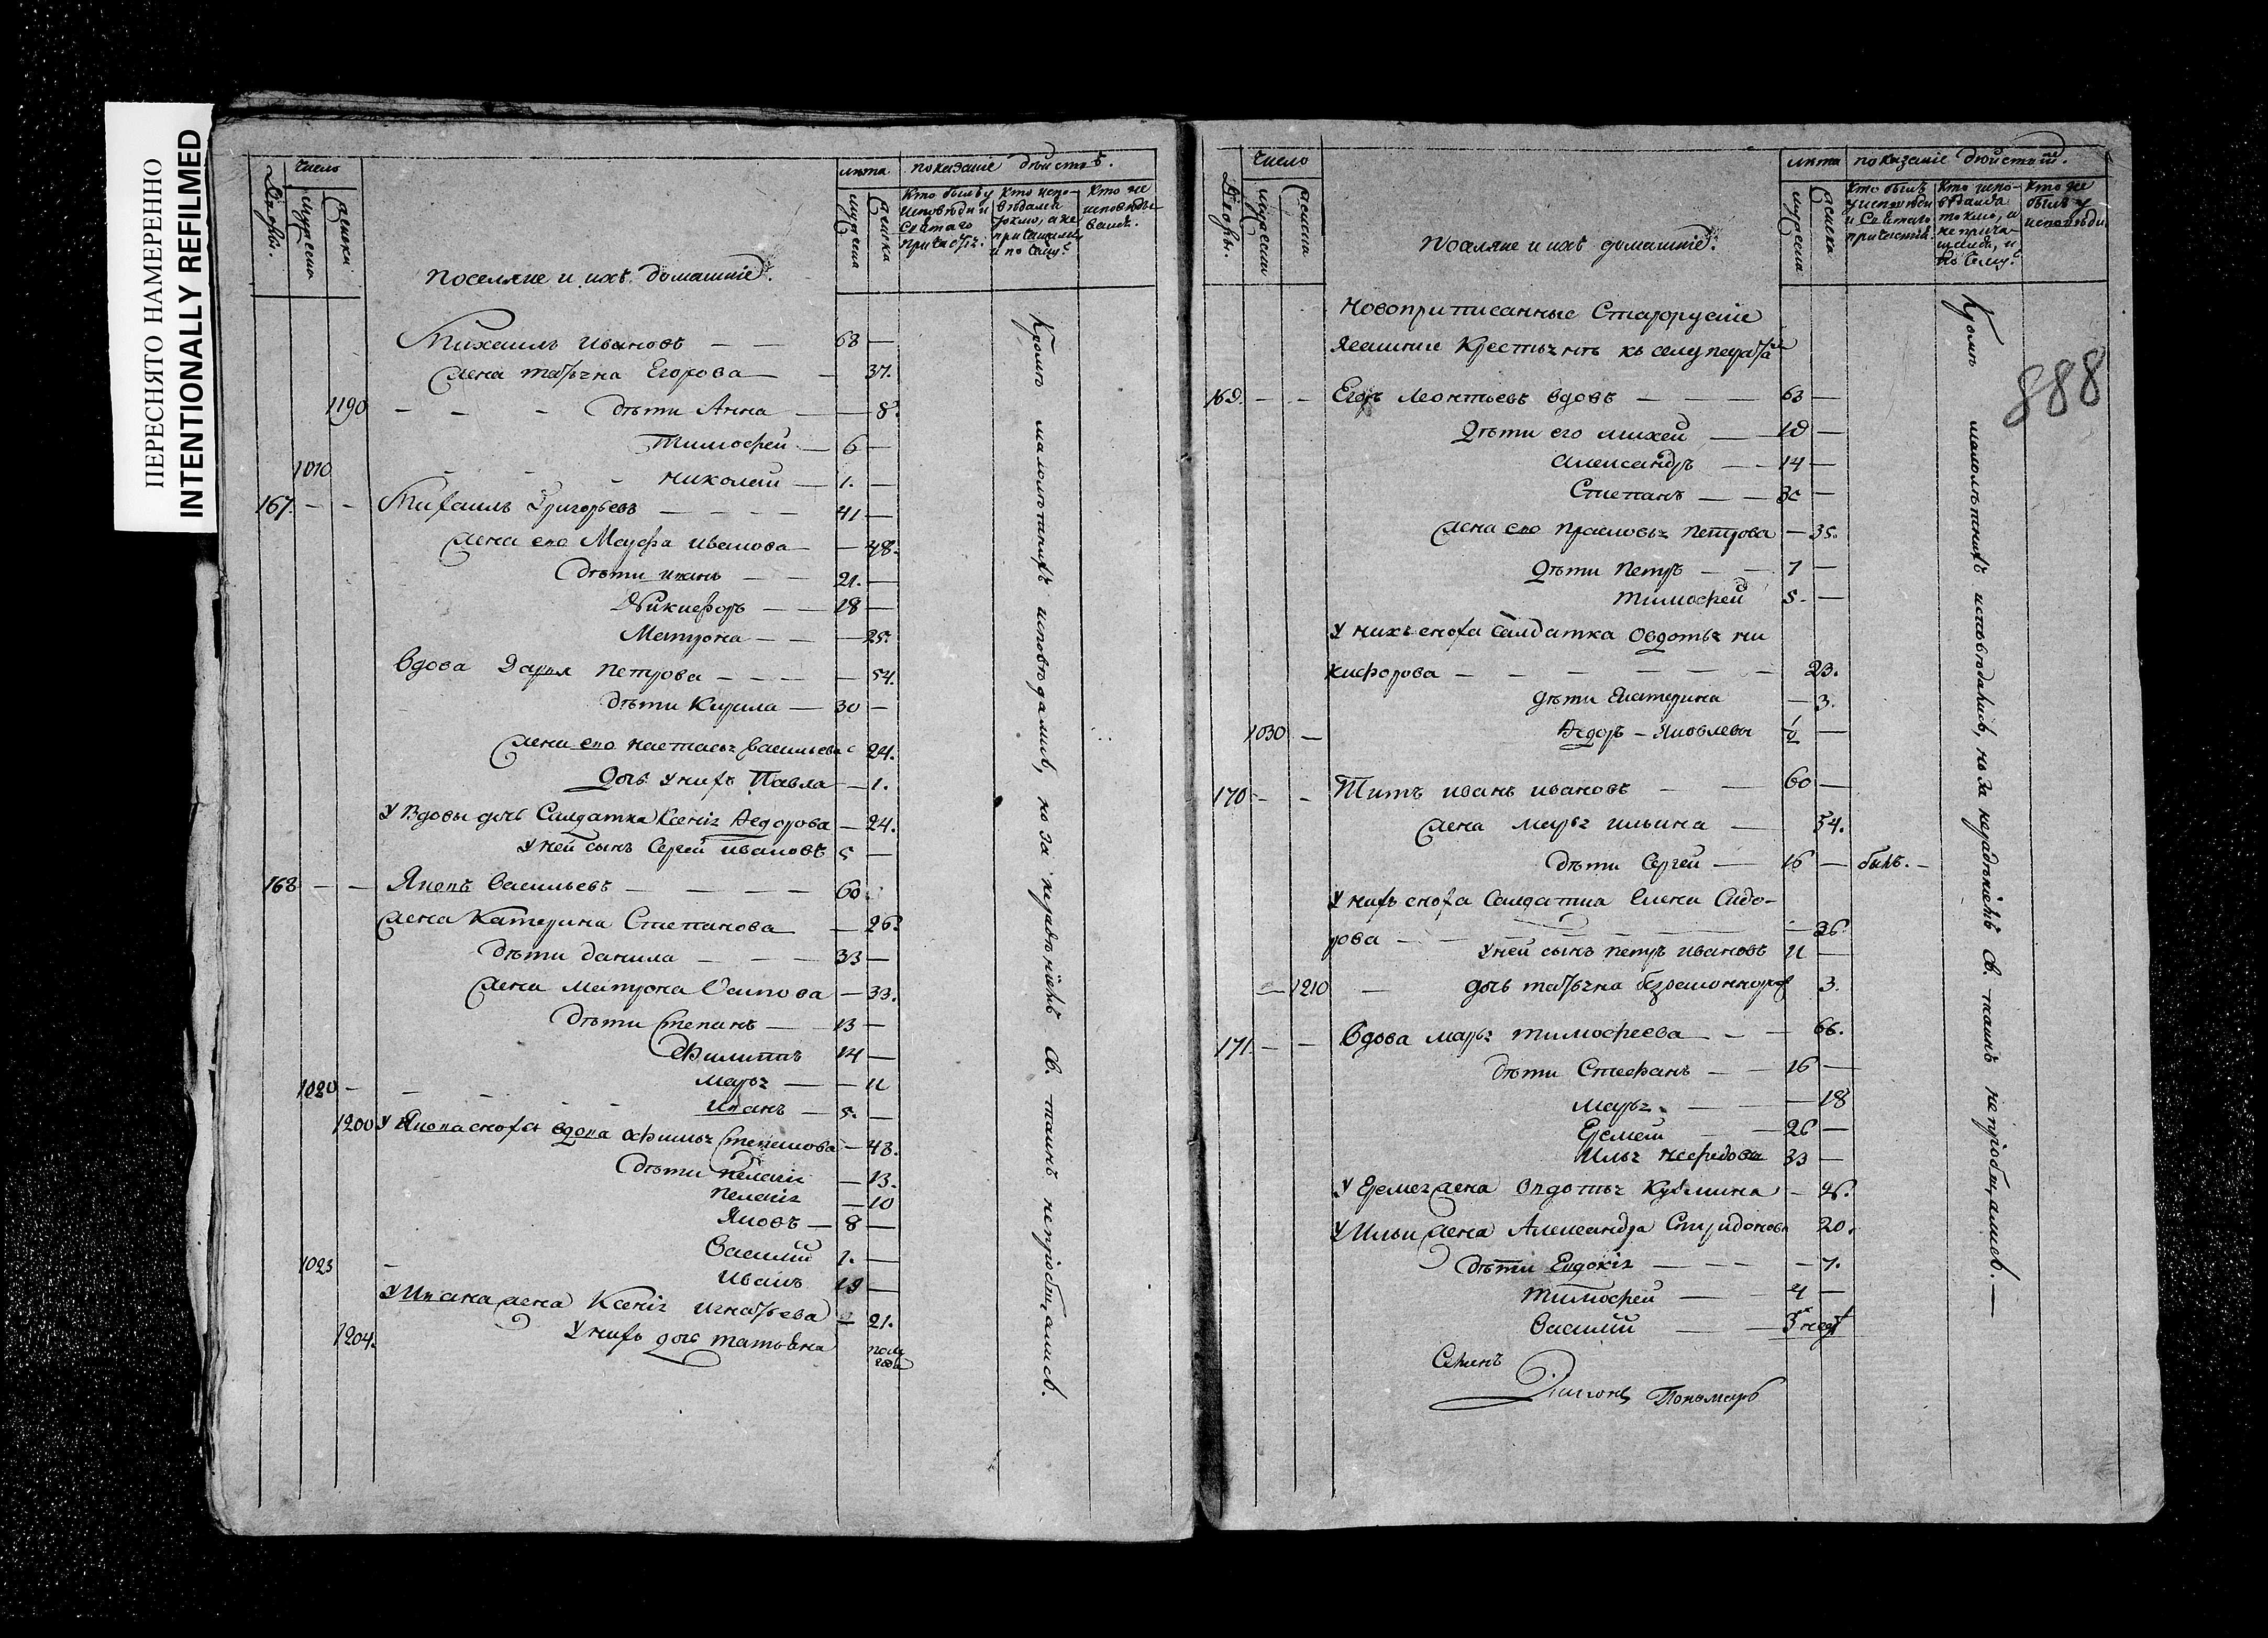 ПЕРЕСНЯТО НАМЕРЕННО
INTENTIONALLY REFILMED
Дворы.
число
мужеска
женска
поселяне и ихъ домашніе.
лѣта
мужеска
женска
показаніе дѣйствъ.
Кто былъ у исповѣди и Святаго причастія.
Кто исповѣдался токмо, а не причащались и по чему?
Кто не исповѣдывался.
Михаилъ Ивановъ — — 68 —
Жена татьяна Егорова — — 37.
1190 — — — дѣти Анна — — 8.
Тимофей — 6 —
1010 — — Николай — 1. —
167. — — Михаилъ Григорьевъ — — — — 41 —
Жена его Марфа Иванова — — 48.
Дѣти иванъ — — 21. —
Никифоръ — — 18 —
Матрона — — — 25.
Вдова Дарья Петрова — — — — 54.
дѣти Кирила — 30 —
Жена его настасья васильева 24.
Дочь у нихъ Павла — 1.
У Вдовы дочь Салдатка Ксенія Ѳедорова — 24.
У ней сынъ Сергей ивановъ 5 —
168 — — Яковъ Васильевъ — — — — 60
Жена Катерина Степанова — 26.
дѣти данила — — — 33 —
Жена матрона Осипова — 33.
дѣти Степанъ — — 13 —
Филиппъ 14 —
марья — — 11
1020 — — — — — Иванъ — 5. —
1200 У Якова сноха вдова Афимья Степанова — 43.
дѣти — 13.
Пелагія — 10
Яковъ — 8 —
Василій 1. —
1023 — Иванъ 19 —
У Ивана жена Ксенія Игнатьева — 21.
1204. У нихъ дочь татьяна пол года
Кромѣ малолѣтнихъ исповѣдались, но за нерадѣніемъ Св. таинъ не пріобщались.
Дворы.
число
мужеска
женска
Поселяне и ихъ домашніе.
лѣта
мужеска
женска
показаніе дѣйствій.
Кто былъ у исповѣди и Святаго причастія.
Кто исповѣдался токмо, а не причащался, и по чему?
Кто не былъ у исповѣди
888
Новоприписанные Старорускіе
Ясашные Крестьянѣ къ селу
169. — — Егоръ Леонтьевъ вдовъ — — — 63 —
Дѣти его михей — 19 —
Александръ — — 14 —
Степанъ — — 30 —
Жена его Прасковья Петрова — 35.
Дѣти Петръ — — 7 —
Тимофей 5. —
У нихъ сноха Салдатка Овдотья ни
кифорова — — — — — — 23.
Дѣти Екатерина — 3.
1030 — Ѳедоръ — Яковлевы ½ —
170 — — Титъ иванъ ивановъ — — 60 —
Жена марья ильина — 54.
дѣти Сергей — 16 — былъ. —
У нихъ сноха Салдатка Елена Сидо-
рова — — — 36.
У ней сынъ петръ ивановъ 11 —
— 1210 — дочь татьяна 3.
171. — — Вдова марья тимофеева — — 66.
дѣти Стефанъ — — 16 —
Марья. — — — 18
Еремей — — 26 —
Илья 33 —
У Еремея жена Овдотья Кузмина — 26.
У Ильи жена Александра Спиридонова 20.
дѣти Евдокія — — — — 7.
Тимофей — — 4 —
Василій — — 3 недѣ
Дьячокъ Пономарь
Кромѣ малолѣтнихъ исповѣдались, но за нерадѣніемъ Св. таинъ не пріобщались. —